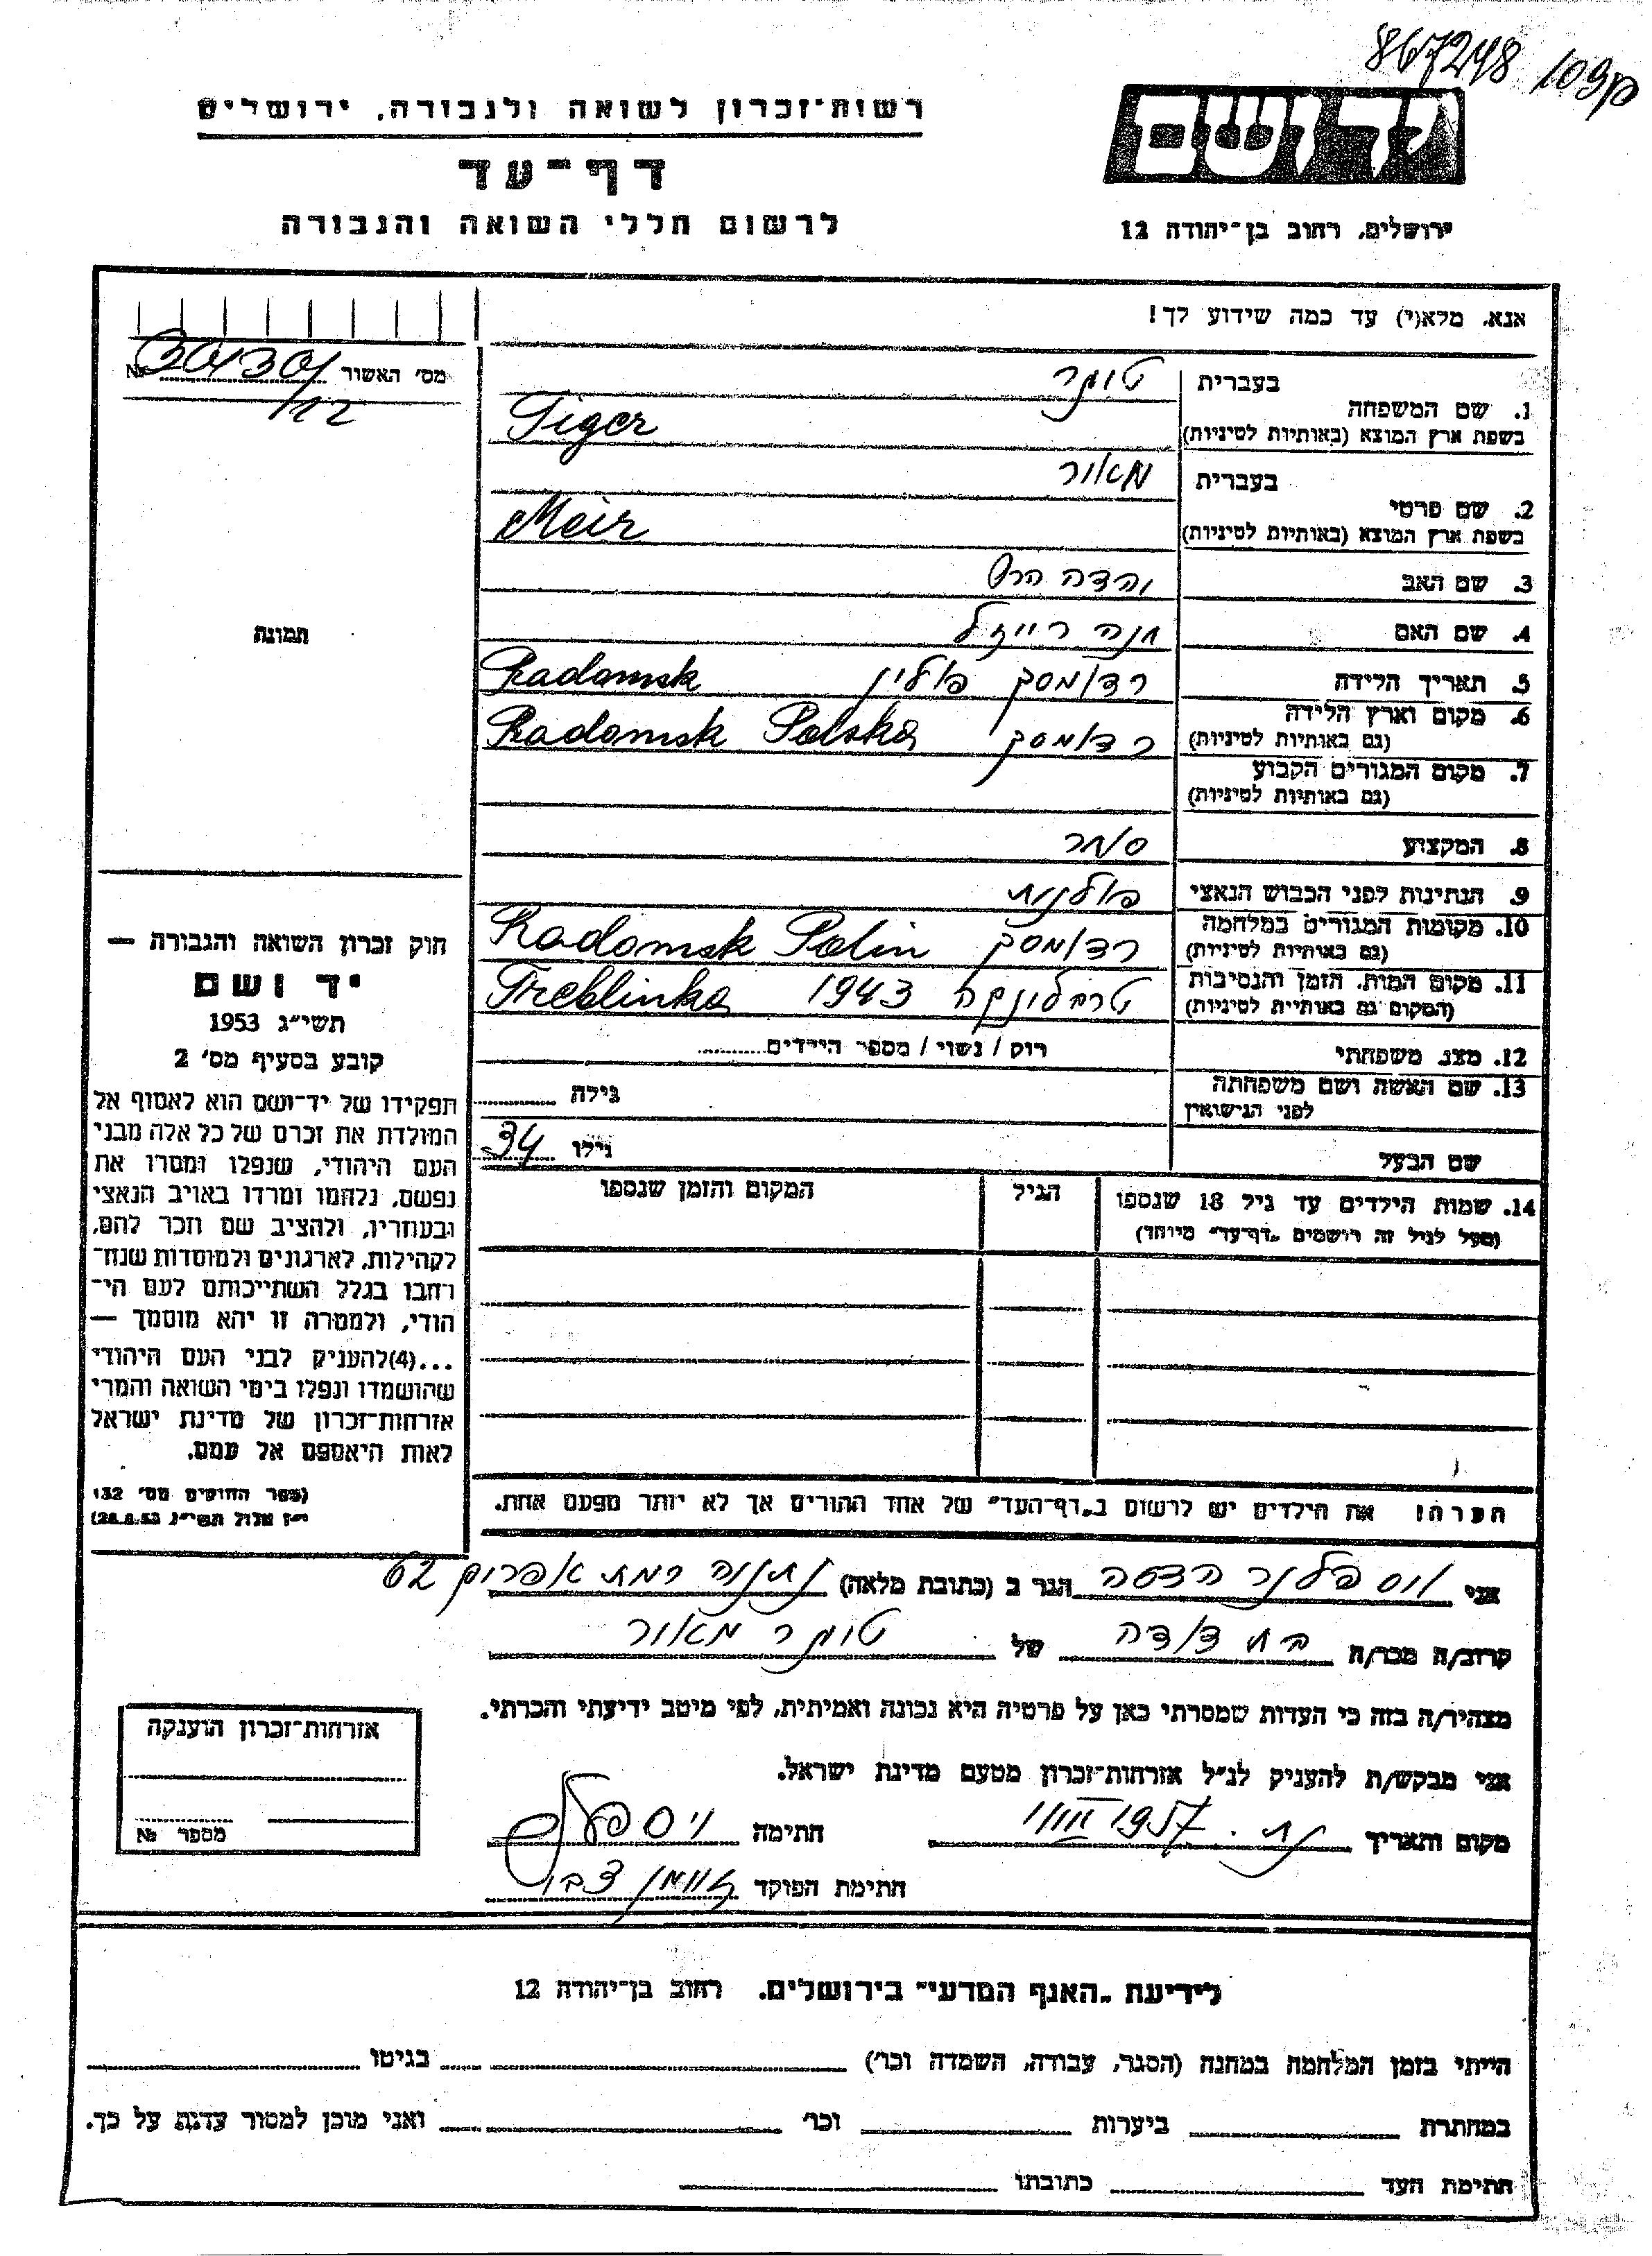 867248 109ק
יד ושם
רשות־זכרון לשואה ולגבורה, ירושלים
דף־עד
לרשום חללי השואה והגבורה
ירושלים, רחוב בן־יהודה 12
אנא, מלא(י) עד כמה שידוע לך!
מס׳ האשור №
/12
תמונה
1. שם המשפחה
בעברית טיגר
בשפת ארץ המוצא (באותיות לטיניות) Tiger
2. שם פרטי
בעברית מאיר
בשפת ארץ המוצא (באותיות לטיניות) Meir
3. שם האב
4. שם האם חנה רייזל
5. תאריך הלידה רדומסק פולין Radomsk
6. מקום וארץ הלידה
(גם באותיות לטיניות) רדומסק Radomsk Polska
7. מקום המגורים הקבוע
(גם באותיות לטיניות)
8. המקצוע סוחר
9. הנתינות לפני הכבוש הנאצי פולנית
10. מקומות המגורים במלחמה
(גם באותיות לטיניות) רדומסק Radomsk Polin
11. מקום המות, הזמן והנסיבות
(המקום גם באותיות לטיניות) טרבלינקה 1943 Treblinka
12. מצב משפחתי רוק / נשוי / מספר הילדים
13. שם האשה ושם משפחתה
לפני הנישואין גילה
שם הבעל גילו 34
14. שמות הילדים עד גיל 18 שנספו הגיל המקום והזמן שנספו
(מעל לגיל זה רושמים „דף־עד״ מיוחד)
הערה! את הילדים יש לרשום ב„דף־העד״ של אחד ההורים אך לא יותר מפעם אחת.
חוק זכרון השואה והגבורה —
יד ושם
תשי״ג 1953
קובע בסעיף מס׳ 2
תפקידו של יד־ושם הוא לאסוף אל
המולדת את זכרם של כל אלה מבני
העם היהודי, שנפלו ומסרו את
נפשם, נלחמו ומרדו באויב הנאצי
ובעוזריו, ולהציב שם וזכר להם,
לקהילות, לארגונים ולמוסדות שנח־
רחבו בגלל השתייכותם לעם הי־
הודי, ולמטרה זו יהא מוסמך —
...(4) להעניק לבני העם היהודי
שהושמדו ונפלו בימי השואה והמרי
אזרחות־זכרון של מדינת ישראל
לאות היאספם אל עמם.
(ספר החוקים מס׳ 132
י״ז אלול תשי״ג 28.8.53)
אני ויספלנר הדסה הגר ב (כתובת מלאה) נתניה רמת אפרים 62
קרוב/ה מכר/ה בת דודה של טיגר מאיר
מצהיר/ה בזה כי העדות שמסרתי כאן על פרטיה היא נכונה ואמיתית, לפי מיטב ידיעתי והכרתי.
אני מבקש/ת להעניק לנ״ל אזרחות־זכרון מטעם מדינת ישראל.
מקום ותאריך 1957 חתימה
חתימת הפוקד
אזרחות־זכרון הוענקה
מספר №
לידיעת „האגף המדעי״ בירושלים. רחוב בן־יהודה 12
הייתי בזמן המלחמה במחנה (הסגר, עבודה, השמדה וכו׳) בגיטו
במחתרת ביערות וכו׳ ואני מוכן למסור עדות על כך.
חתימת העד כתובתו